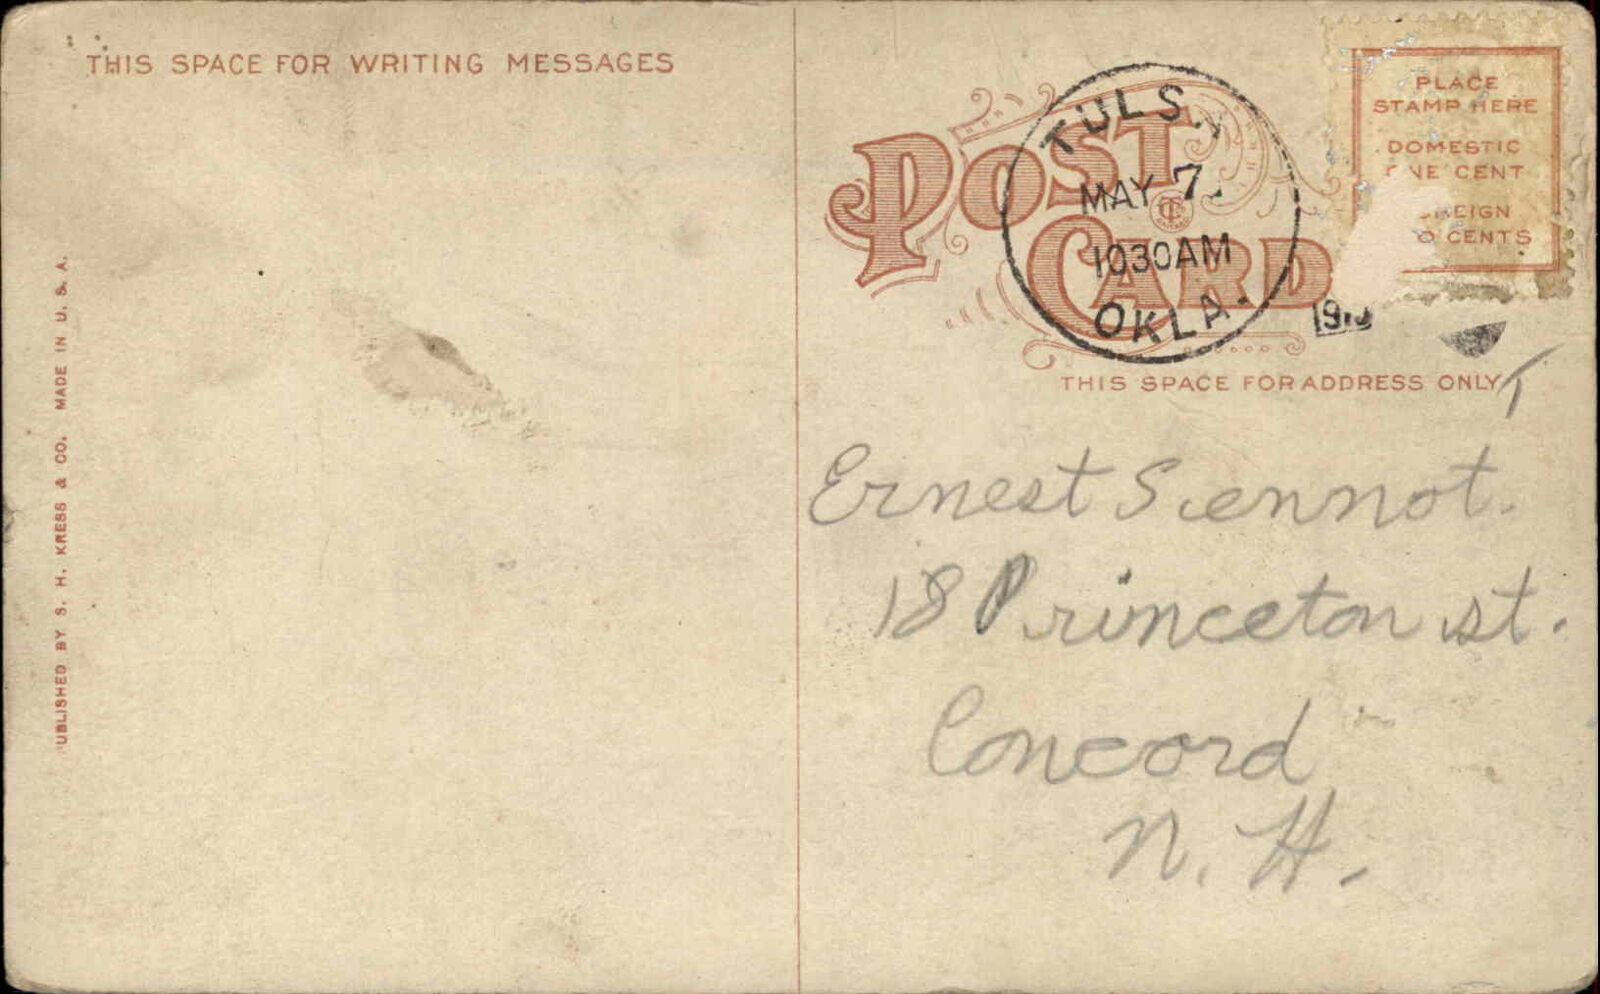 THIS SPACE FOR WRITING MESSAGES
UBLISHED BY S. H. KRESS & CO. MADE IN U. S. A.
POST CARD
TULS
MAY 7
1030AM
OKLA.
PLACE
STAMP HERE
DOMESTIC
NE CENT
EIGN
O CENTS
THIS SPACE FOR ADDRESS ONLY
Ernest Sennot.
18 Princeton st.
Concord
N. H.